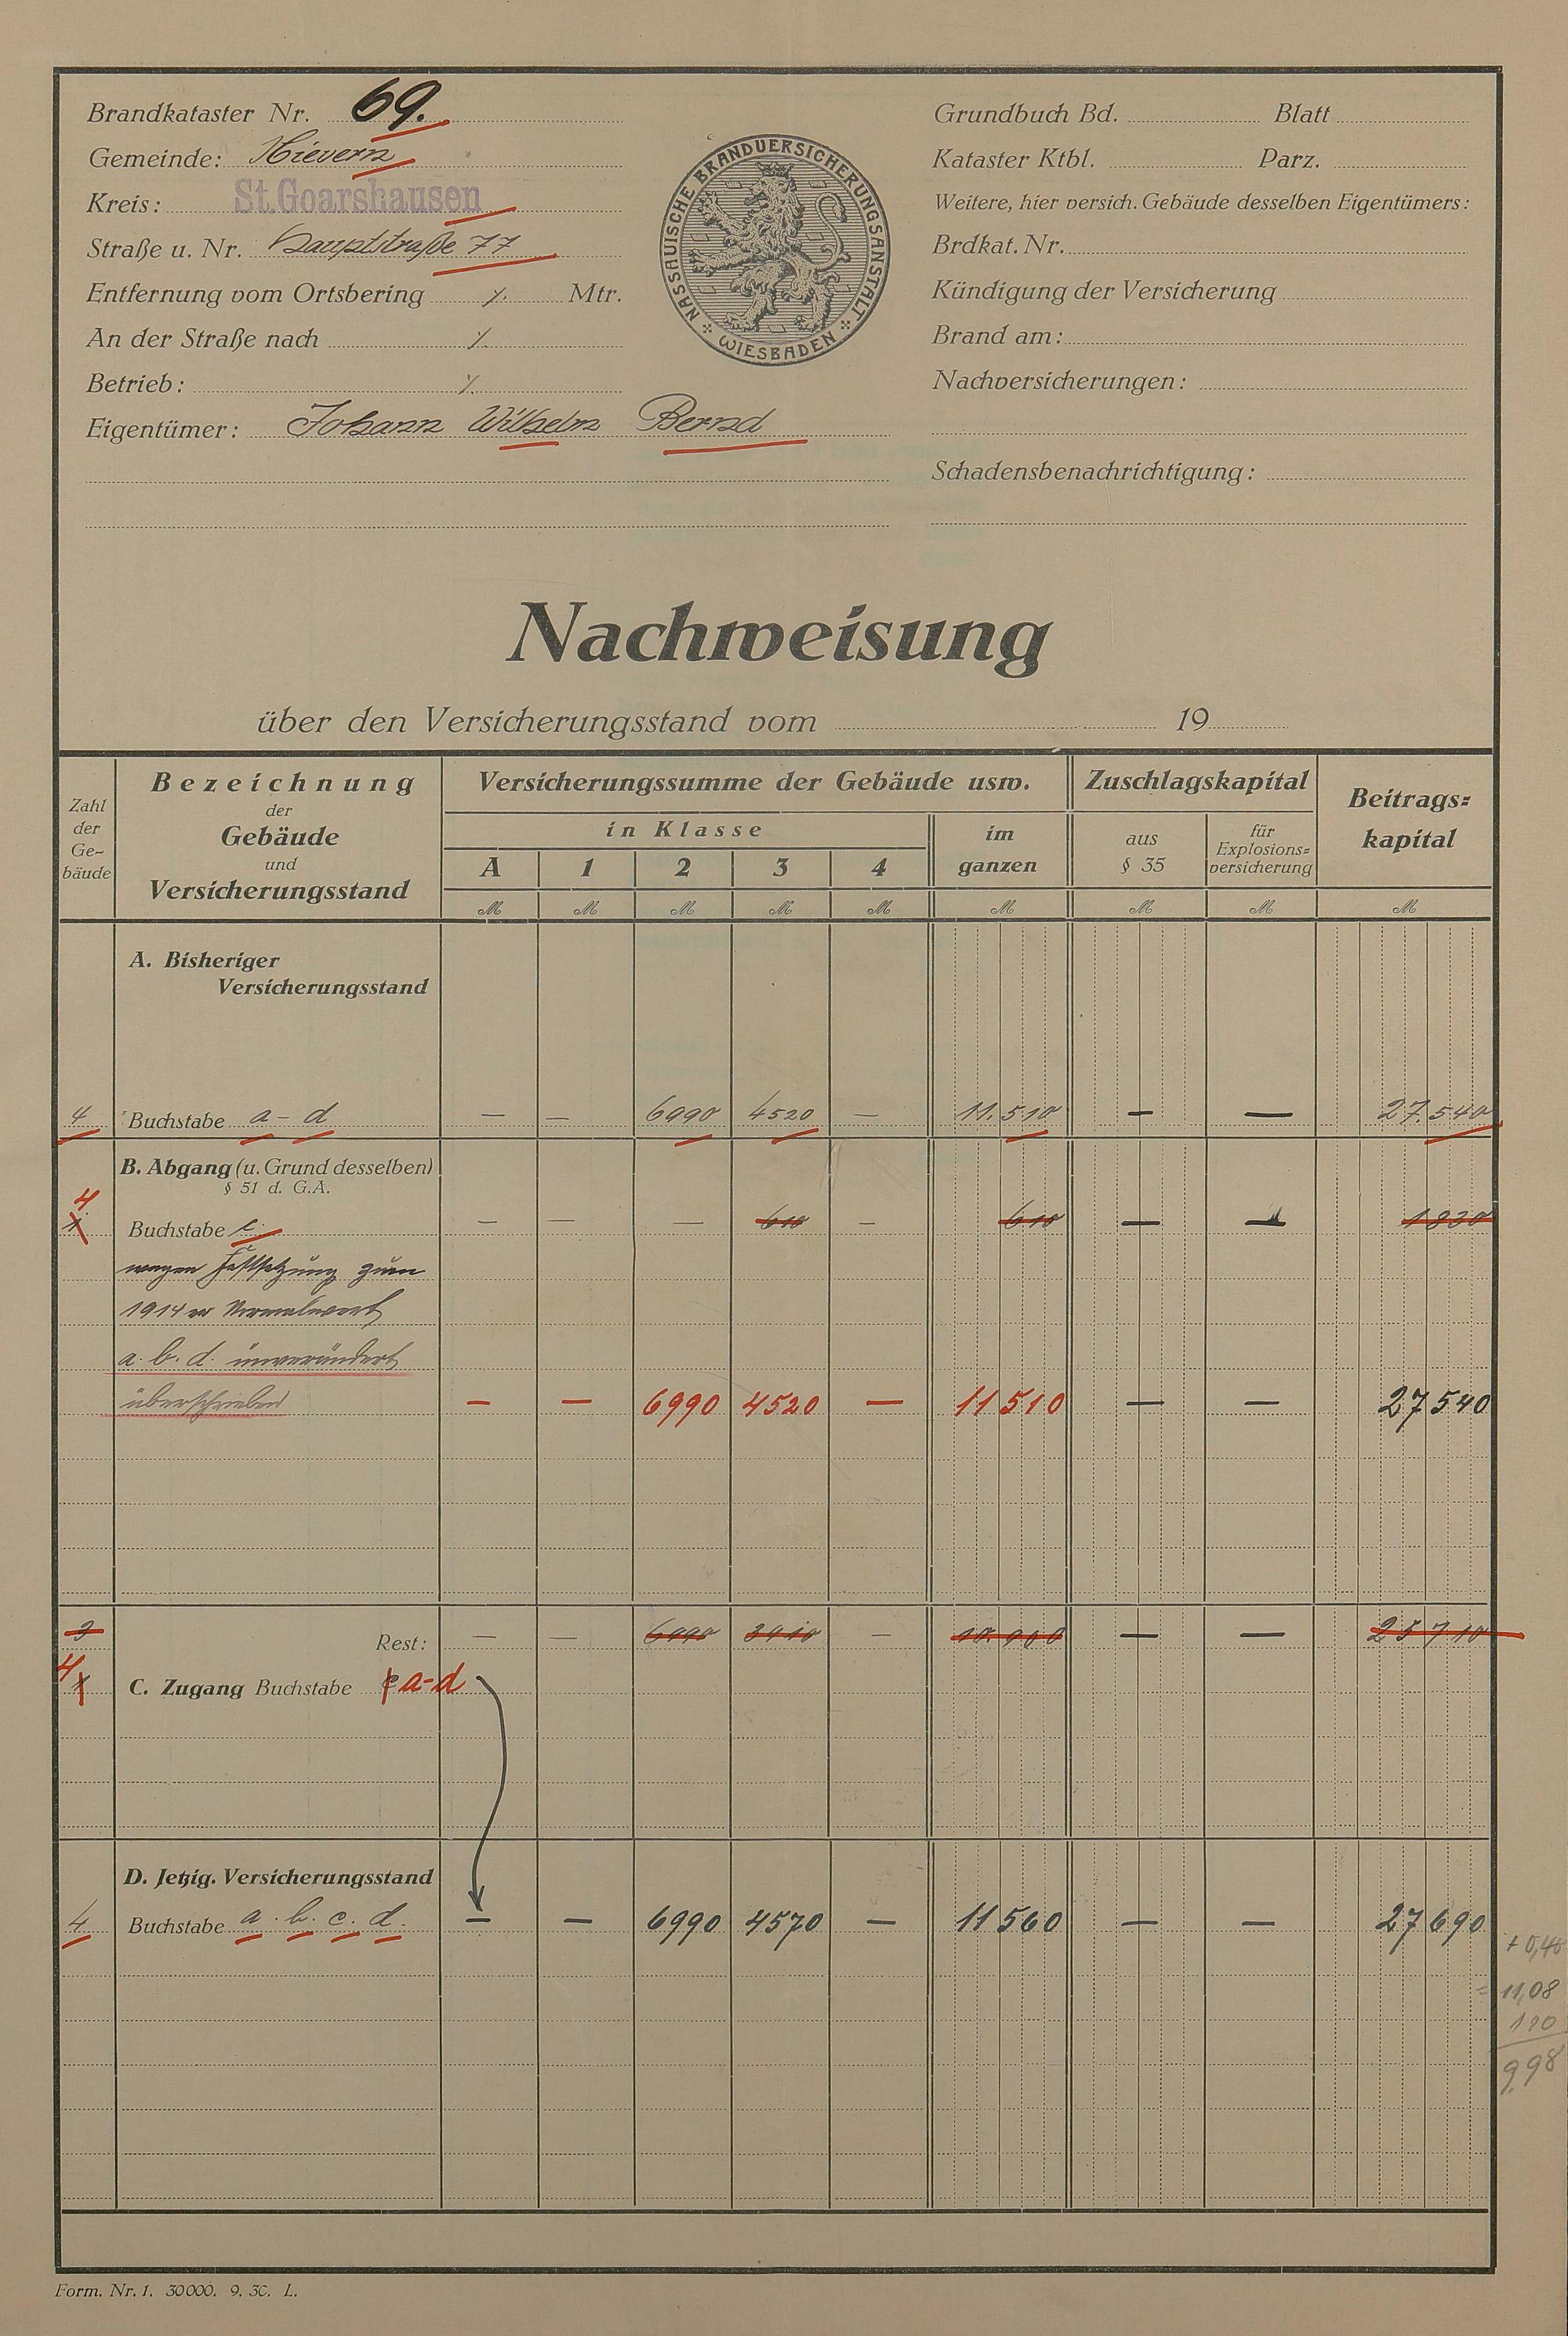 Brandkataster Nr. 69.
Gemeinde: Nievern
Kreis: St. Goarshausen
Straße u. Nr. Hauptstraße 77
Entfernung vom Ortsbering ⁒ Mtr.
An der Straße nach ⁒
Betrieb: ⁒
Eigentümer: Johann Wilhelm Bernd
NASSAUISCHE BRANDVERSICHERUNGSANSTALT
WIESBADEN
Grundbuch Bd. Blatt
Kataster Ktbl. Parz.
Weitere, hier versich. Gebäude desselben Eigentümers:
Brdkat. Nr.
Kündigung der Versicherung
Brand am:
Nachversicherungen:
Schadensbenachrichtigung:
Nachweisung
über den Versicherungsstand vom 19
Zahl der Ge-bäude
Bezeichnung der Gebäude und Versicherungsstand
Versicherungssumme der Gebäude usw.
in Klasse
A 1 2 3 4
im ganzen
Zuschlagskapital
aus § 35
für Explosions-versicherung
Beitrags-kapital
M M M M M M M M M
A. Bisheriger
Versicherungsstand
4 Buchstabe a – d — — 6990 4520 — 11.510 — — 27.540
B. Abgang (u. Grund desselben)
§ 51 d. G.A.
4
1 Buchstabe c. — — — 610 — 610 — — 1830
wegen Festsetzung zum
1914er Normalwert
a. b. d. unverändert
überschrieben — — 6990 4520 — 11510 — — 27540
3 Rest: — — 6990 3910 — 10.900 — — 25710
4 1 C. Zugang Buchstabe c a-d
D. Jetzig. Versicherungsstand
4 Buchstabe a. b. c. d. — — 6990 4570 — 11560 — — 27690
= 11,08
9,98
Form. Nr. 1. 30000. 9. 30. L.